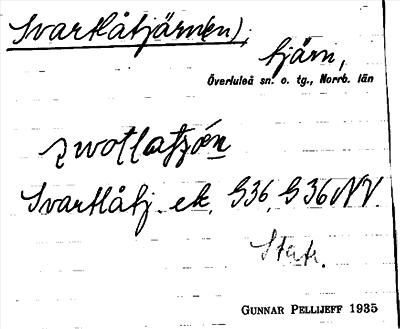 Svartlåtjärn(en),
tjärn,
Överluleå sn. o. tg., Norrb. län
Svartlåtj. ek. G36, G36NV.
GUNNAR PELLIJEFF 1935